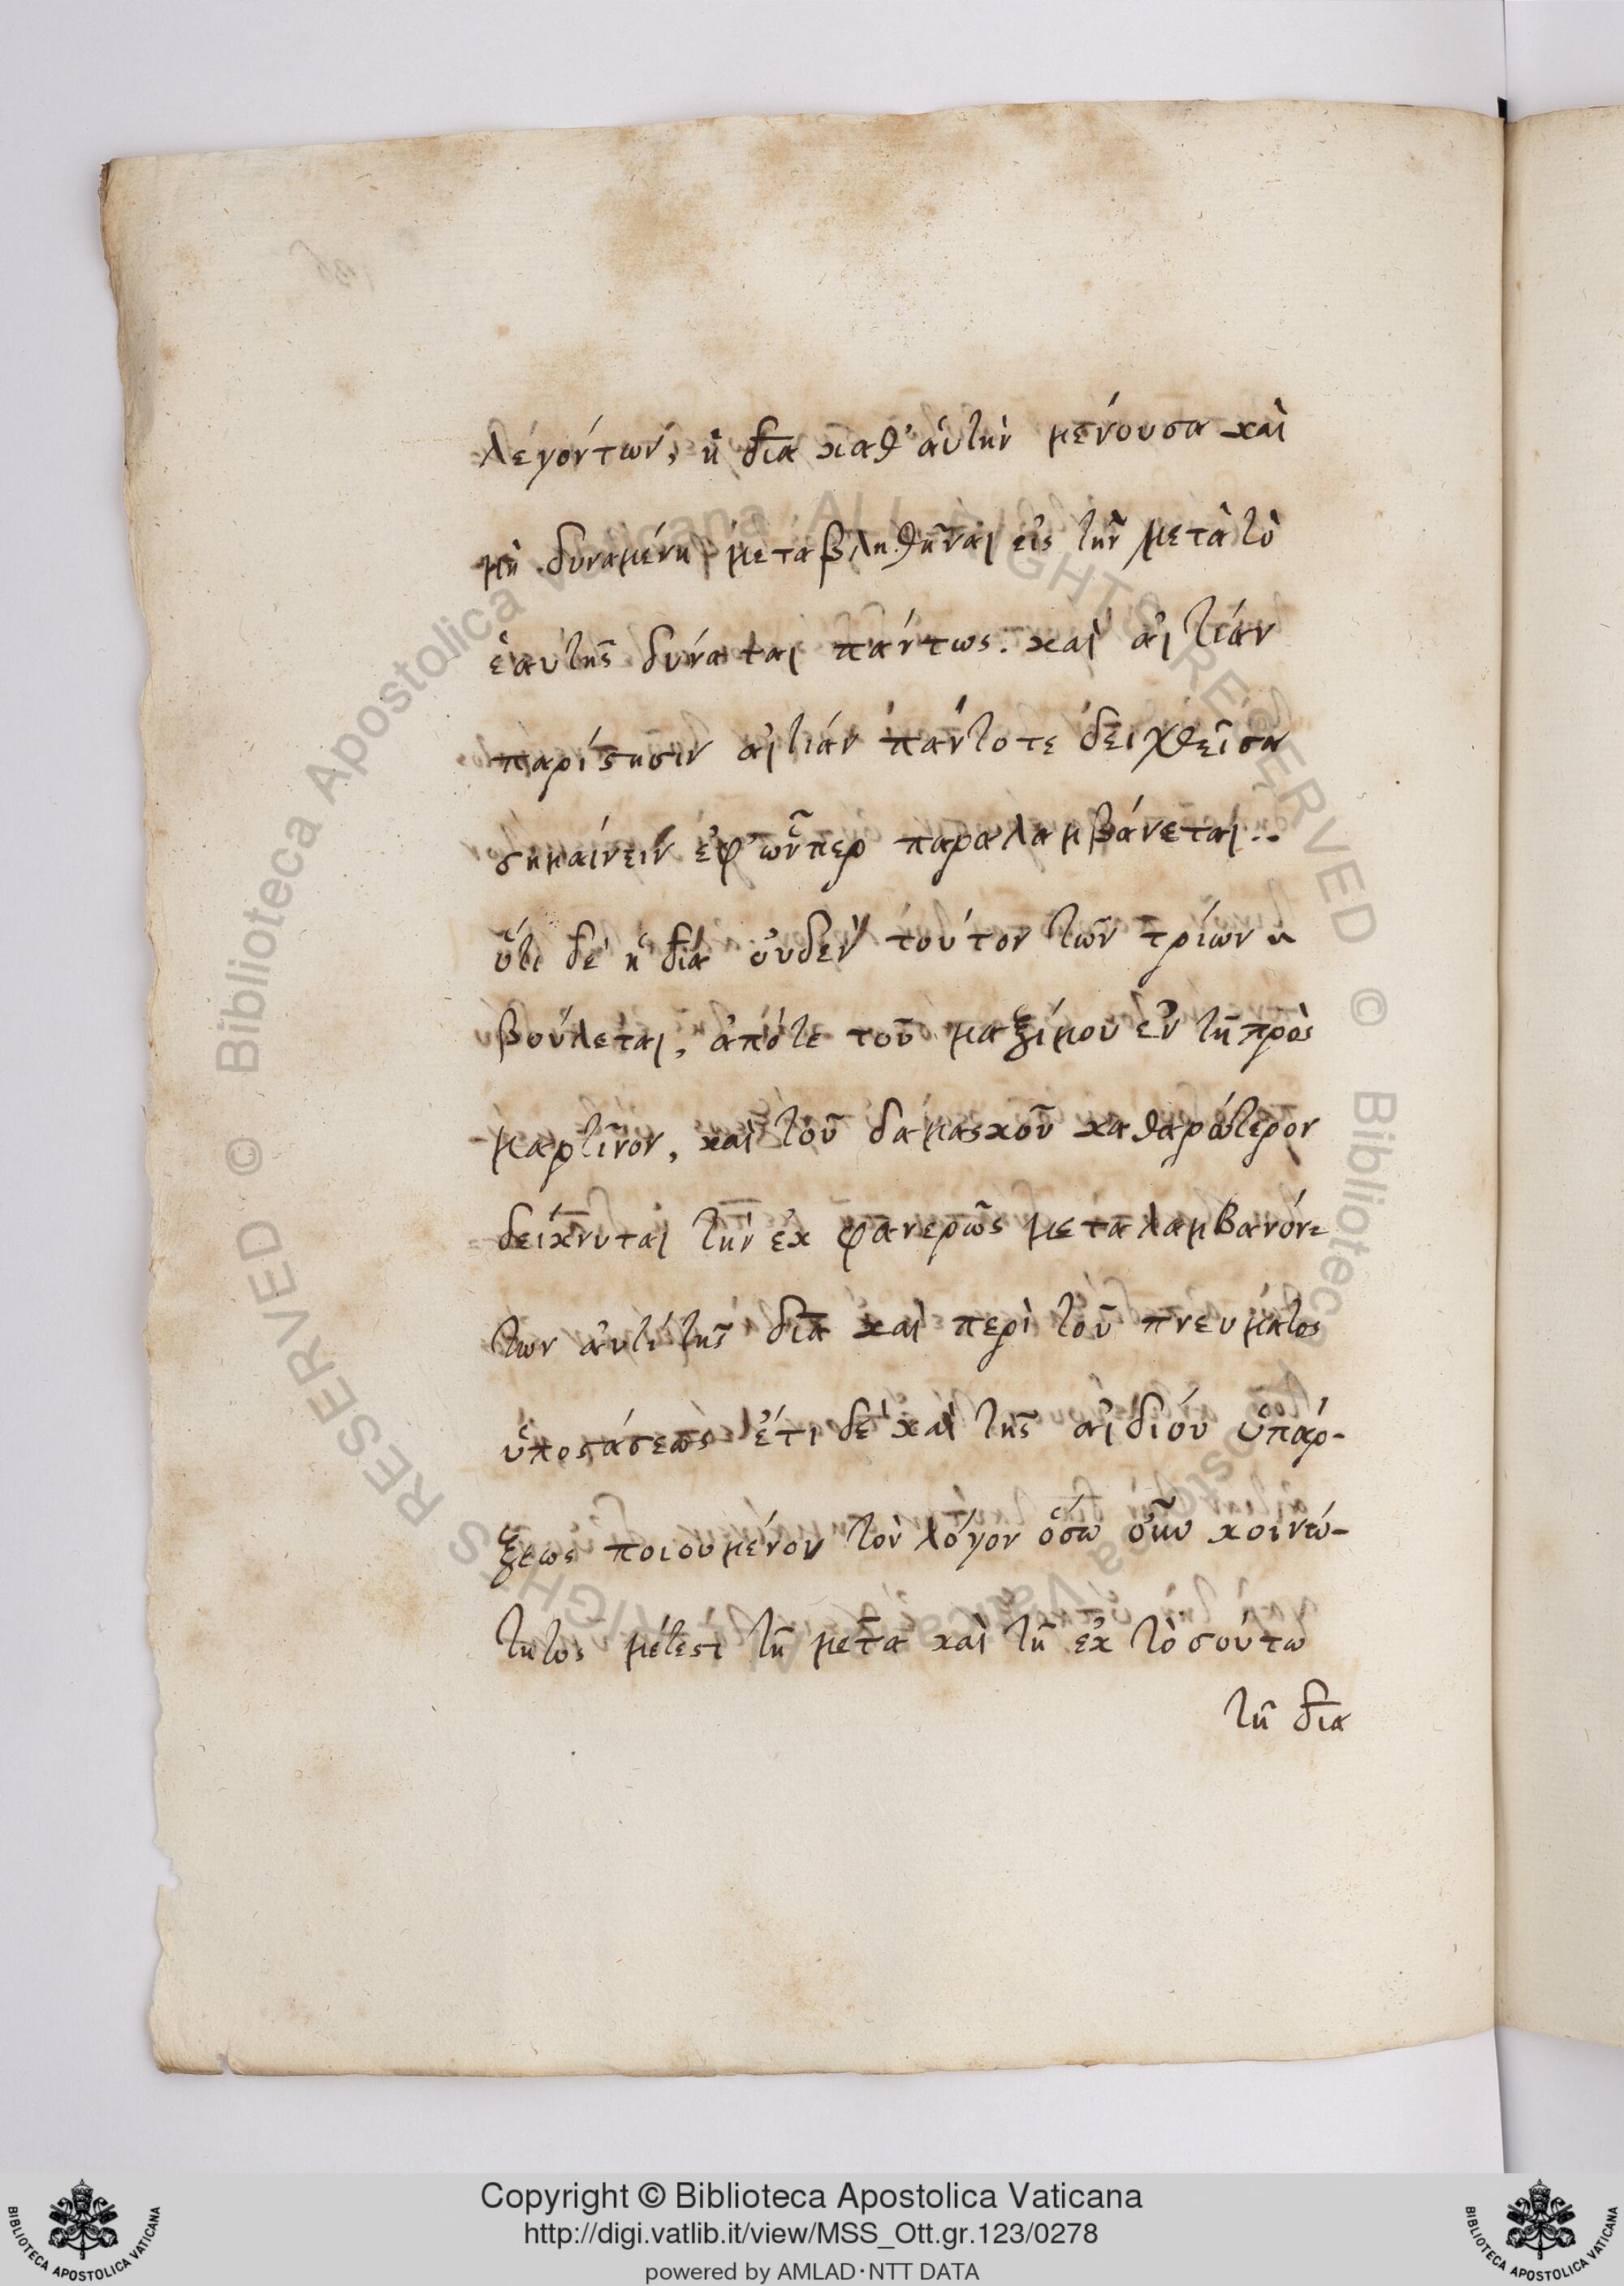 λεγόντων, ἡ δια καθ' αὑτὴν μένουσα καὶ
μὴ δυναμένη μεταβληθῆναι εἰς τὴν μετὰ τὸ
ἑαυτῆς δύναται πάντως. καὶ αἰτίαν
παρίστησιν αἰτίαν πάντοτε δειχθεῖσα
σημαίνειν ἐφ' ὧνπερ παραλαμβάνεται..
ὅτι δὲ ἡ διὰ οὐδὲν τούτον τῶν τρίων
βούλεται, ἀπότε τοῦ μαξίμου ἐν τῆ πρὸς
μαρτῖνον, καὶ τοῦ δαμασκοῦ καθαρώτερον
δείκνυται τὴν ἐκ φανερῶς μεταλαμβανόν=
των ἀντὶ τῆς δια καὶ περὶ τοῦ πνευματος
ὑποστάσεως ἔτι δὲ καὶ τῆς αἰδιόυ ὑπάρ-
ξεως ποιουμένον τὸν λόγον ὅσω οὖν κοινώ-
τητος μέτεστι τῆ μετα καὶ τῆ ἐκ τὸσούτω
τῆ δια
Copyright © Biblioteca Apostolica Vaticana
http://digi.vatlib.it/view/MSS_Ott.gr.123/0278
powered by AMLAD·NTT DATA
BIBLIOTECA APOSTOLICA VATICANA
BIBLIOTECA APOSTOLICA VATICANA
© Biblioteca Apostolica Vaticana ALL RIGHTS RESERVED
© Biblioteca Apostolica Vaticana ALL RIGHTS RESERVED